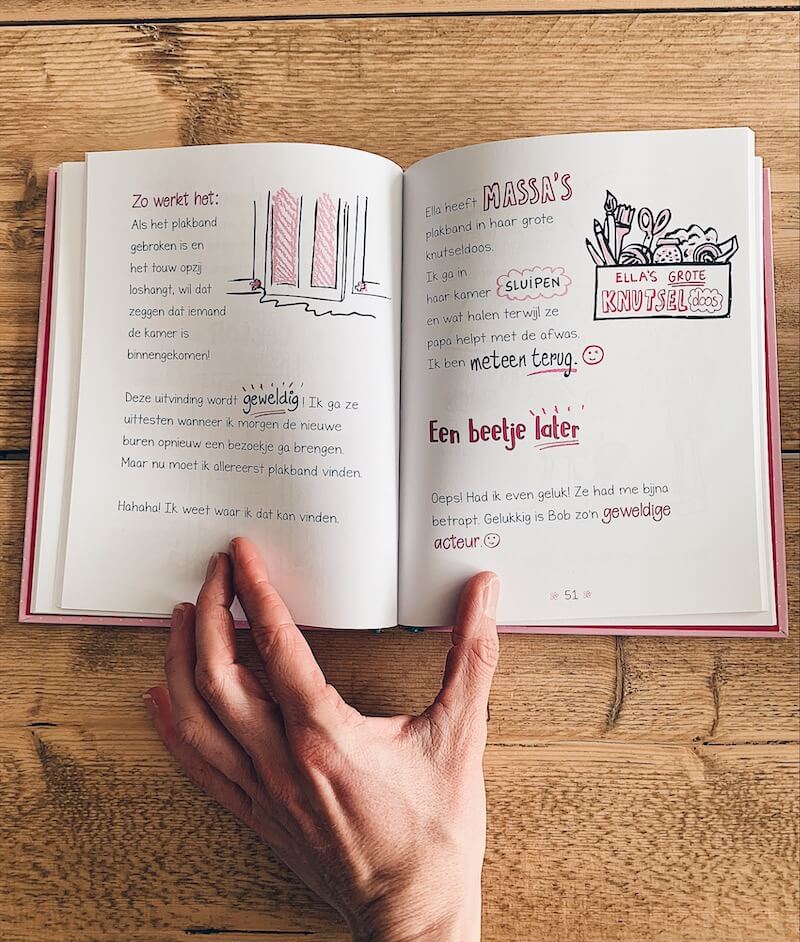 Zo werkt het:
Als het plakband
gebroken is en
het touw opzij
loshangt, wil dat
zeggen dat iemand
de kamer is
binnengekomen!
Deze uitvinding wordt geweldig! Ik ga ze
uittesten wanneer ik morgen de nieuwe
buren opnieuw een bezoekje ga brengen.
Maar nu moet ik allereerst plakband vinden.
Hahaha! Ik weet waar ik dat kan vinden.
Ella heeft MASSA'S
plakband in haar grote
knutseldoos.
Ik ga in
haar kamer SLUIPEN
en wat halen terwijl ze
papa helpt met de afwas.
Ik ben meteen terug.
ELLA'S GROTE
KNUTSELdoos
Een beetje later
Oeps! Had ik even geluk! Ze had me bijna
betrapt. Gelukkig is Bob zo'n geweldige
acteur.
51